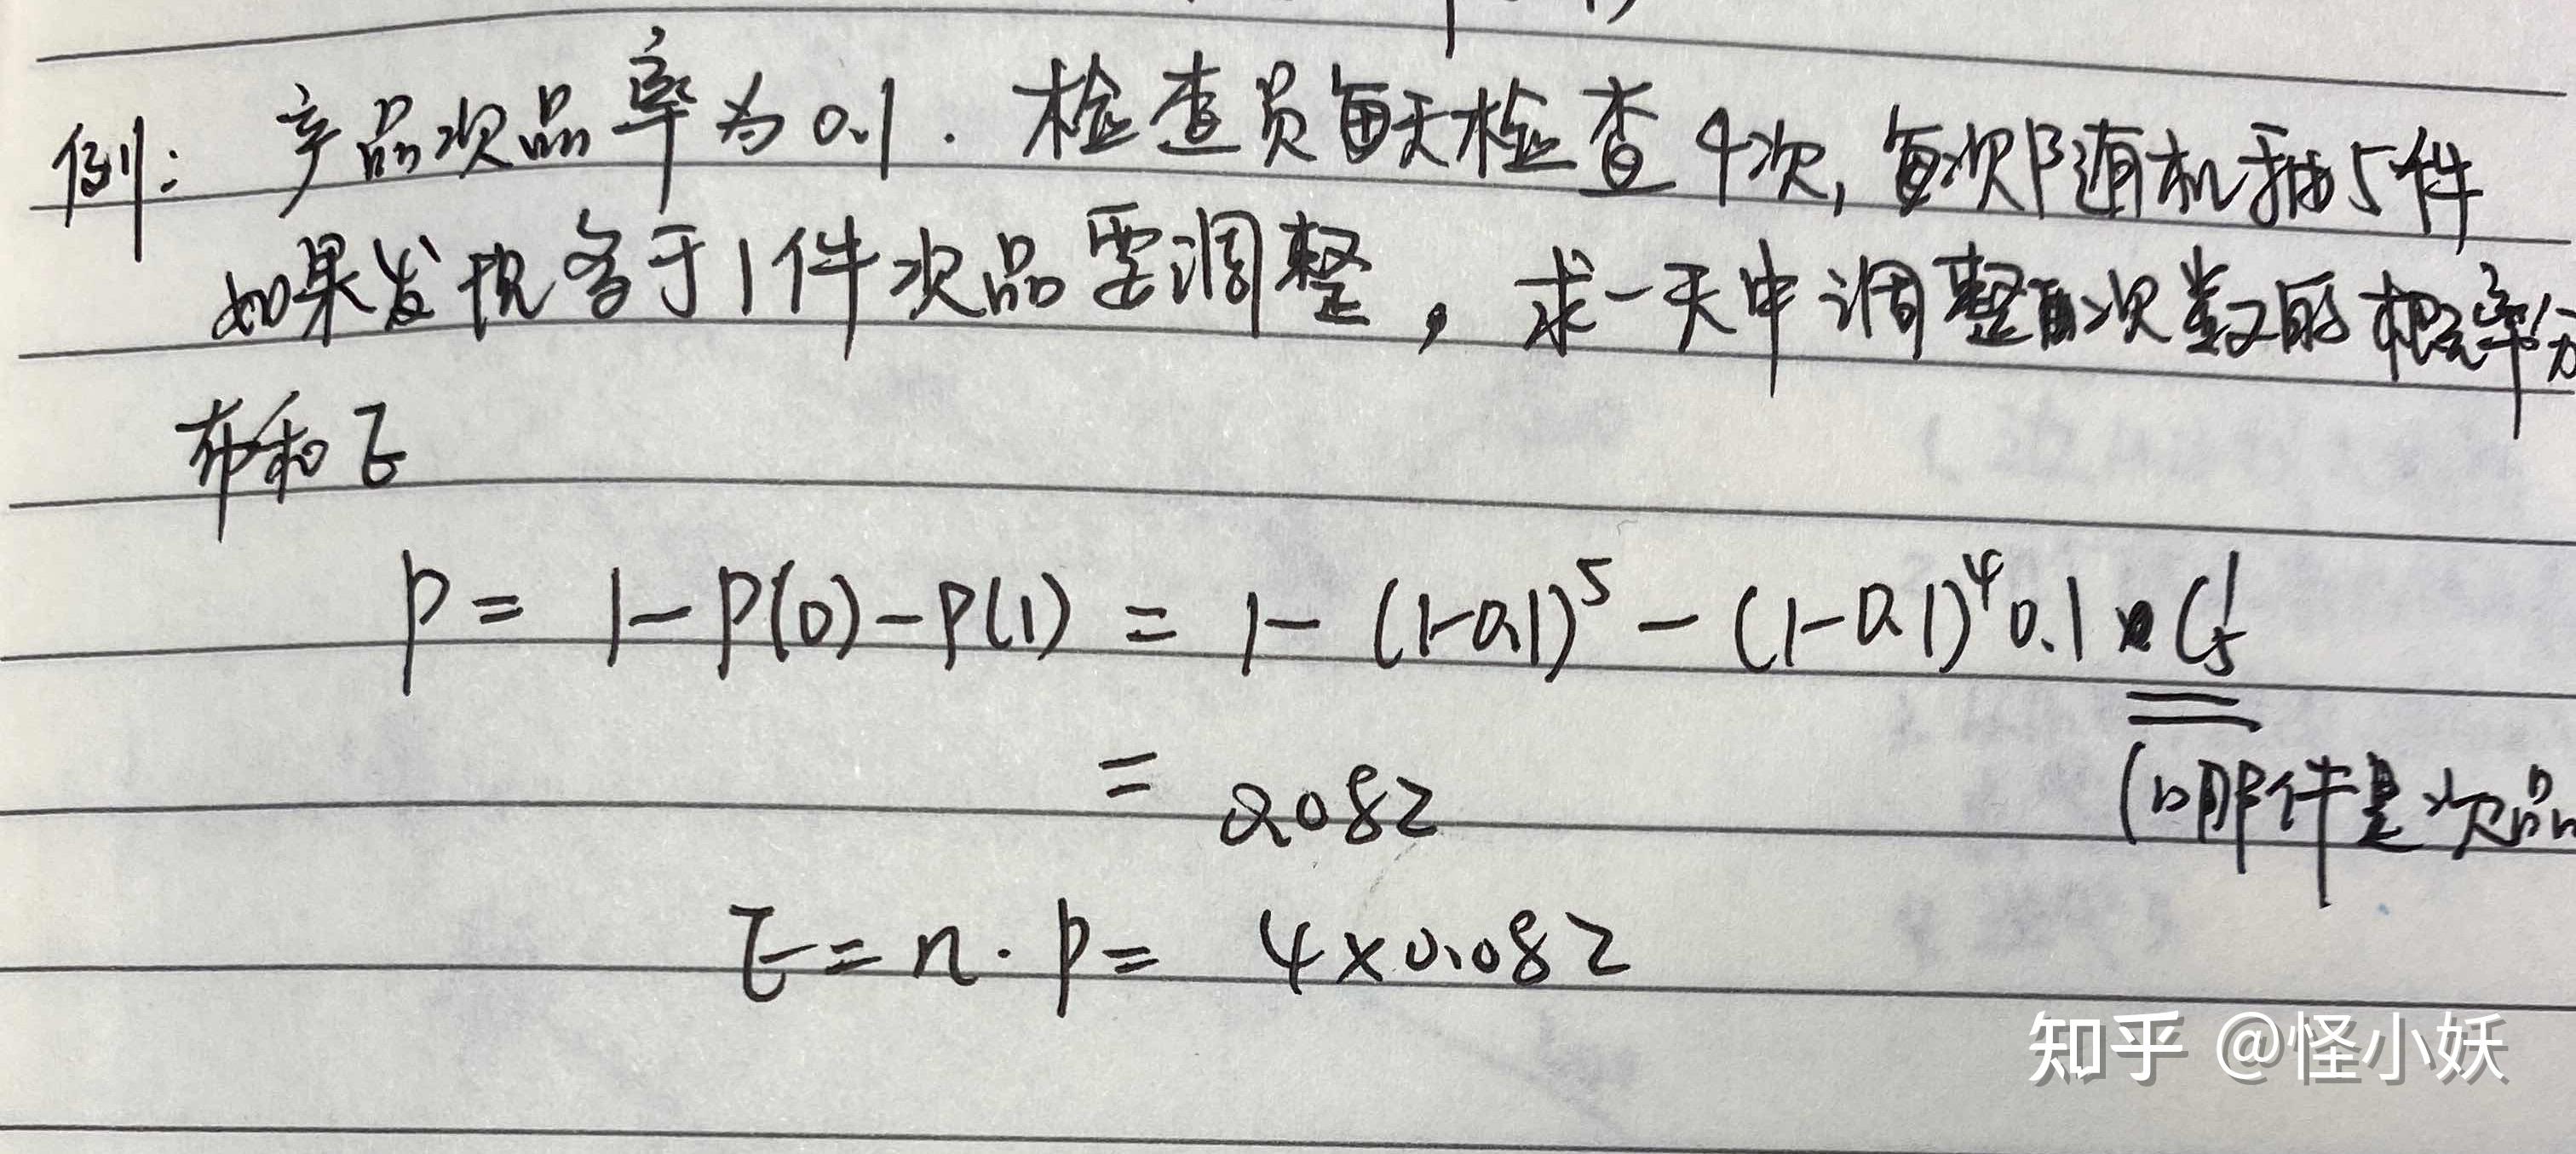 例: 产品次品率为0.1. 检查员每天检查4次, 每次随机抽5件
如果发现多于1件次品要调整, 求一天中调整次数的概率分
布和E
P = 1-P(0)-P(1) = 1-(1-0.1)⁵-(1-0.1)⁴0.1×C₅¹
= 0.082
(哪件是次品
E=n·p= 4×0.082
知乎 @怪小妖